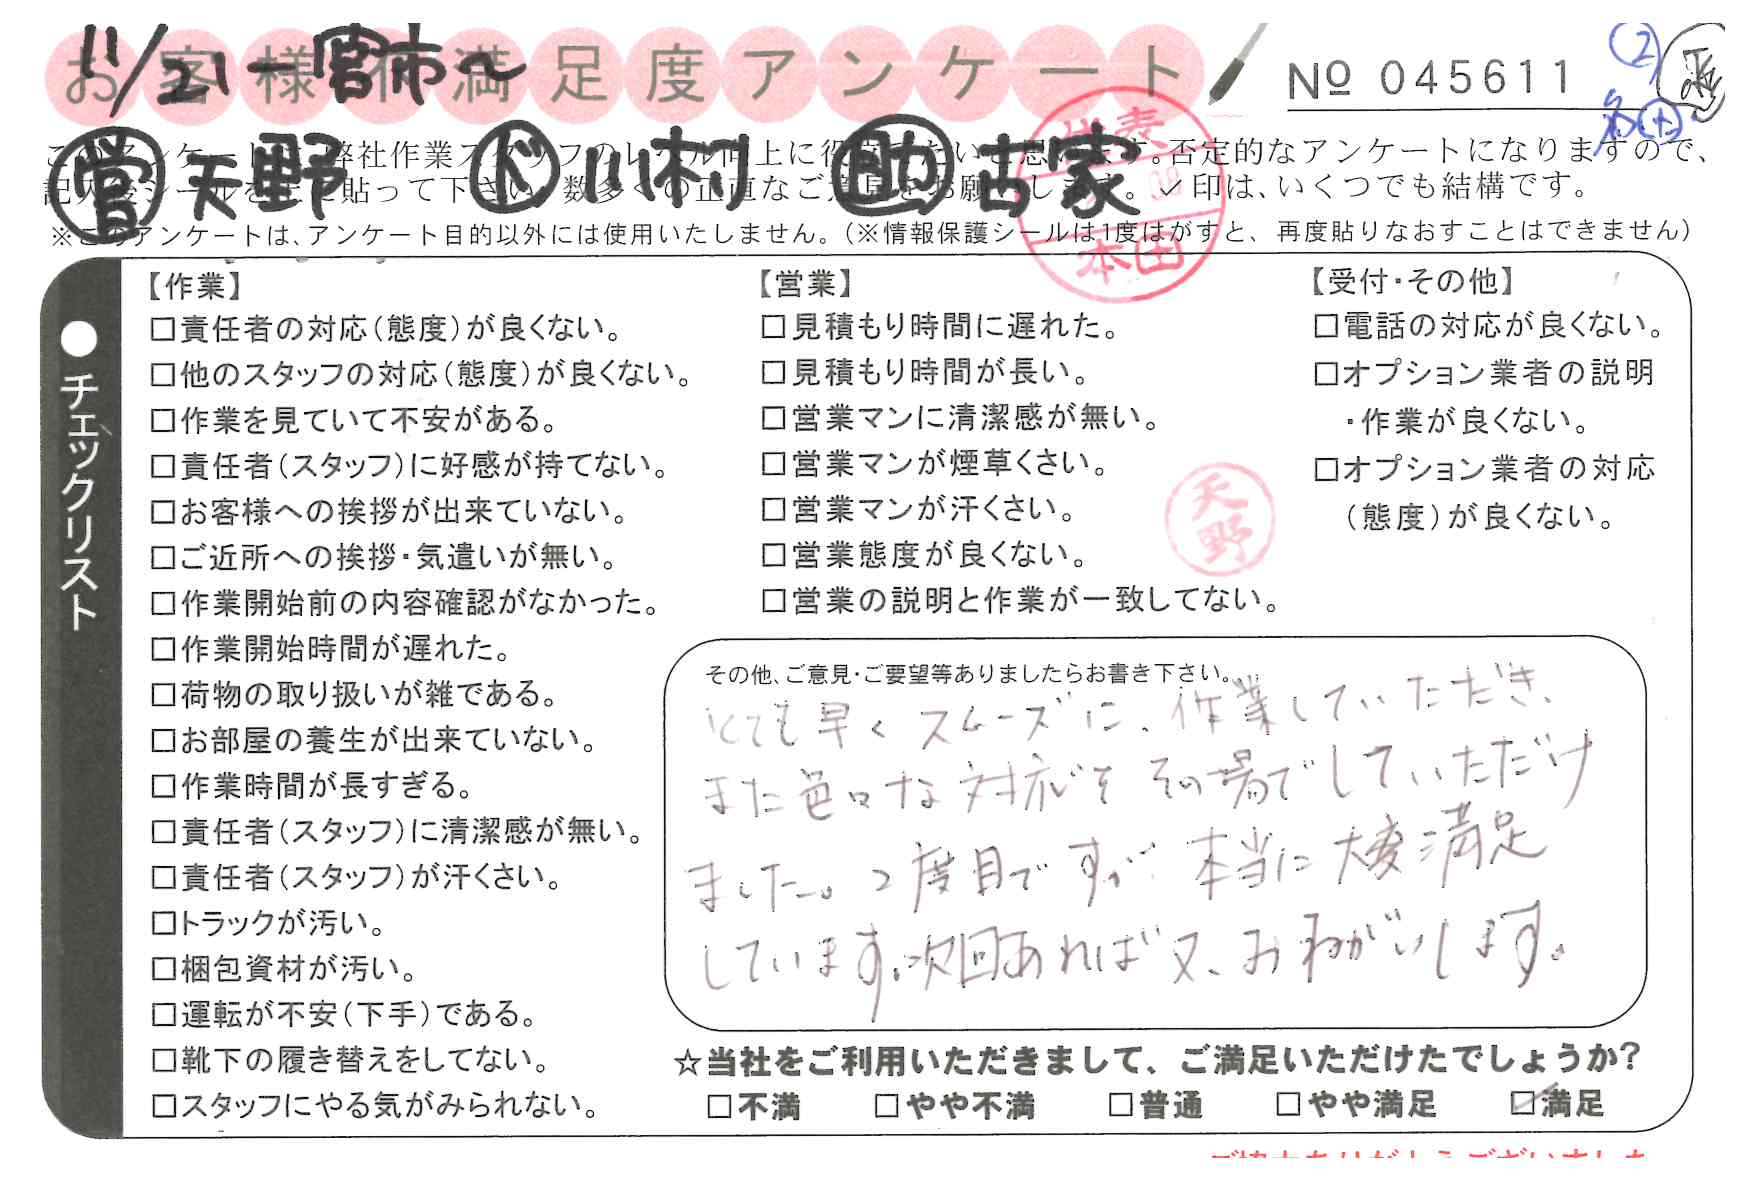 お客様不満足度アンケート
11/21 一宮市〜
No 045611
②
名古
営 天野 ド 川村 助 古家
このアンケートは、弊社作業スタッフのレベル向上に役立てたいと思います。否定的なアンケートになりますので、
記入後シールを上に貼って下さい。数多くの正直なご意見をお願いします。✓印は、いくつでも結構です。
※このアンケートは、アンケート目的以外には使用いたしません。(※情報保護シールは1度はがすと、再度貼りなおすことはできません)
代表
本田
●チェックリスト
【作業】
□責任者の対応(態度)が良くない。
□他のスタッフの対応(態度)が良くない。
□作業を見ていて不安がある。
□責任者(スタッフ)に好感が持てない。
□お客様への挨拶が出来ていない。
□ご近所への挨拶・気遣いが無い。
□作業開始前の内容確認がなかった。
□作業開始時間が遅れた。
□荷物の取り扱いが雑である。
□お部屋の養生が出来ていない。
□作業時間が長すぎる。
□責任者(スタッフ)に清潔感が無い。
□責任者(スタッフ)が汗くさい。
□トラックが汚い。
□梱包資材が汚い。
□運転が不安(下手)である。
□靴下の履き替えをしてない。
□スタッフにやる気がみられない。
【営業】
□見積もり時間に遅れた。
□見積もり時間が長い。
□営業マンに清潔感が無い。
□営業マンが煙草くさい。
□営業マンが汗くさい。
□営業態度が良くない。
□営業の説明と作業が一致してない。
天野
【受付・その他】
□電話の対応が良くない。
□オプション業者の説明
・作業が良くない。
□オプション業者の対応
(態度)が良くない。
その他、ご意見・ご要望等ありましたらお書き下さい。
とても早くスムーズに、作業していただき、
また色々な対応をその場でしていただけ
ました。2度目ですが本当に大変満足
しています。次回あれば又、おねがいします。
☆当社をご利用いただきまして、ご満足いただけたでしょうか?
□不満 □やや不満 □普通 □やや満足 ☑満足
ご協力ありがとうございました